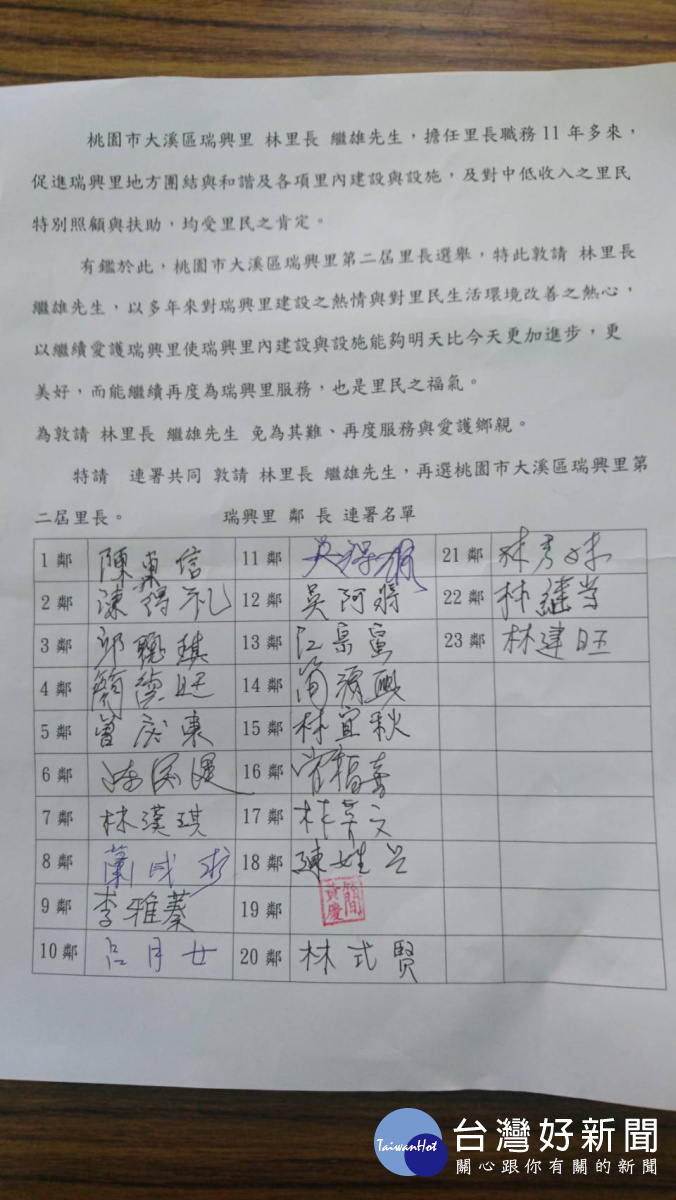 桃園市大溪區瑞興里 林里長 繼雄先生，擔任里長職務11年多來，
促進瑞興里地方團結與和諧及各項里內建設與設施，及對中低收入之里民
特別照顧與扶助，均受里民之肯定。
有鑑於此，桃園市大溪區瑞興里第二屆里長選舉，特此敦請 林里長
繼雄先生，以多年來對瑞興里建設之熱情與對里民生活環境改善之熱心，
以繼續愛護瑞興里使瑞興里內建設與設施能夠明天比今天更加進步，更
美好，而能繼續再度為瑞興里服務，也是里民之福氣。
為敦請 林里長 繼雄先生 免為其難、再度服務與愛護鄉親。
特請 連署共同 敦請 林里長 繼雄先生，再選桃園市大溪區瑞興里第
二屆里長。 瑞興里 鄰 長 連署名單
1鄰 陳東信 11鄰 21鄰
2鄰 12鄰 吳阿將 22鄰
3鄰 13鄰 江 23鄰 林建旺
4鄰 簡德旺 14鄰 簡源興
5鄰 曾庆東 15鄰 林宜秋
6鄰 16鄰
7鄰 林漢琪 17鄰 林
8鄰 18鄰 陳
9鄰 李雅蓁 19鄰 簡
10鄰 呂月女 20鄰 林式賢
TaiwanHot 台灣好新聞
關心跟你有關的新聞